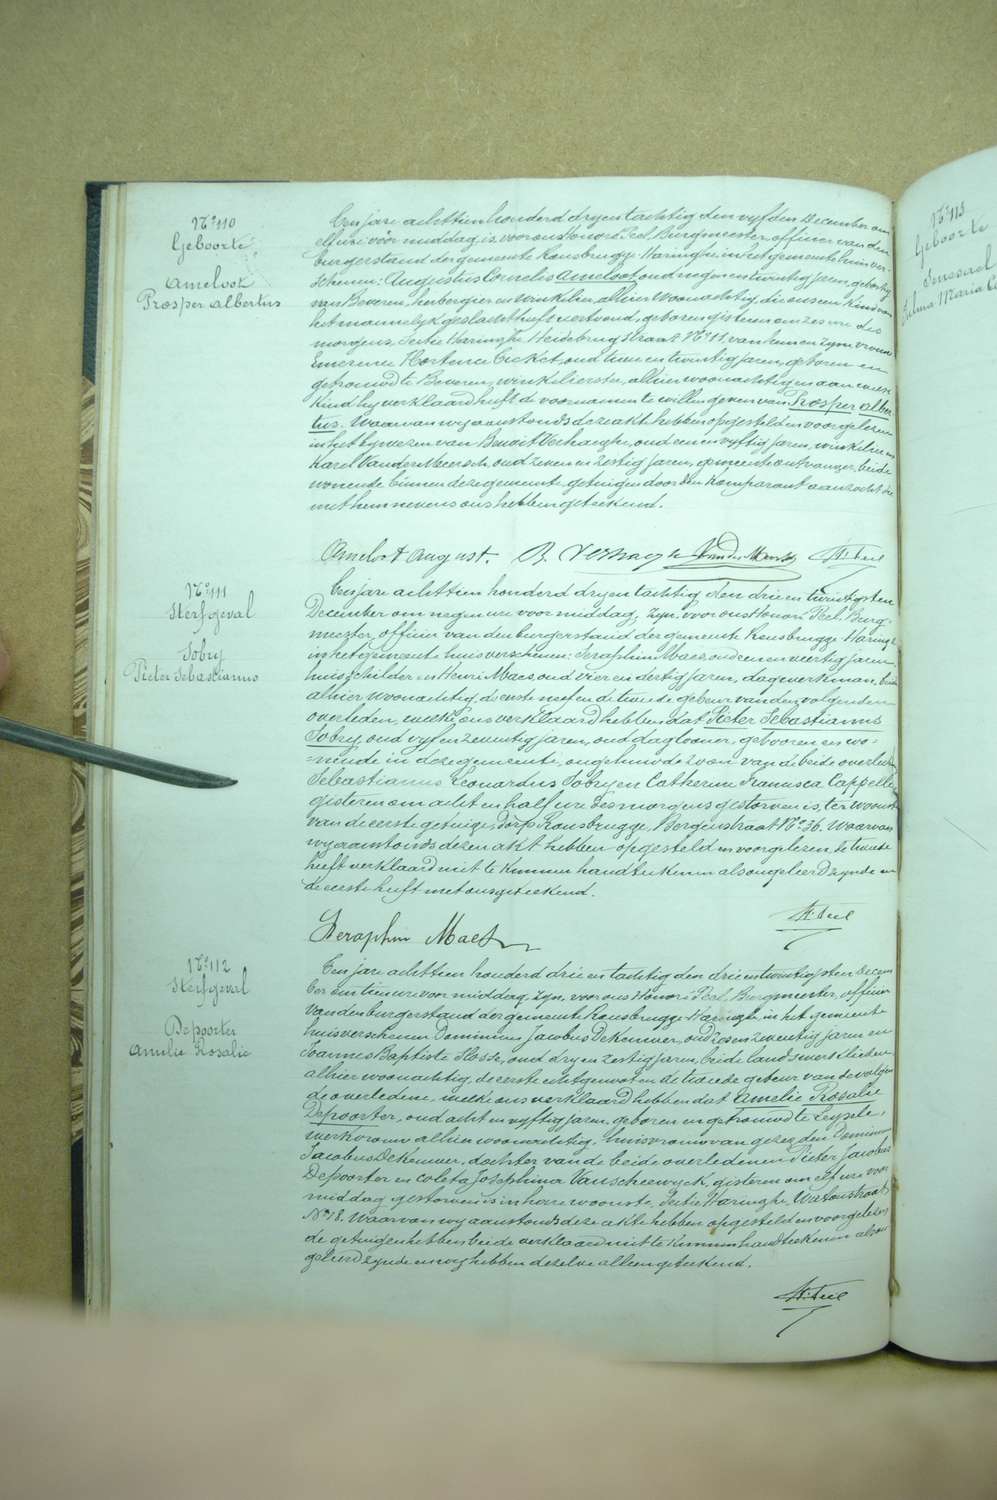 N° 110
Geboorte
Ameloot
Prosper Albertus
Ten jare achttien honderd dryen tachtig den vyfden December om
elf ure voor middag, is voor ons Honoré Peel, Burgmeester, officier van den
burgerstand der gemeente Rousbrugge-Haringhe, in het gemeente huis ver-
schenen: Augustus Cornelis Ameloot, oud negen en twintig jaren, geboortig
van Beveren, herbergier en winkelier, alhier woonachtig, die ons een kind van
het mannelyk geslacht heeft vertoond, geboren gisteren om zes ure des
morgens, Sectie Haringhe Heidebrugstraat N° 11, van hem en zyne vrouw
Emerence Hortence Cicket, oud twee en twintig jaren, geboren en
getrouwd te Beveren, winkelierster, alhier woonachtig en aan welk
kind hy verklaard heeft de voornamen te willen geven van Prosper Alber
tus. Waarvan wy aanstonds deze akt hebben opgesteld en voorgelezen
in het bywezen van Benoit Verhaeghe, oud een en vyftig jaren, winkelier en
Karel Vander Meersch, oud zeven en zestig jaren, gemeente ontvanger, beide
wonende binnen deze gemeente, getuigen door den komparant aanzocht die
met hem nevens ons hebben geteekend.
Ameloot August. B. Verhaeghe Vander Meersch H. Peel
N° 111
Sterfgeval
Sobry
Pieter Sebastianus
Ten jare achttien honderd dryen tachtig den drie en twintigsten
December om negen ure voor middag, zyn voor ons Honoré Peel, Burg-
meester, officier van den burgerstand der gemeente Rousbrugge-Haringhe
in het gemeente huis verschenen: Seraphin Maes, oud een en veertig jaren,
huisschilder en Henri Maes, oud vier en dertig jaren, dagwerkman, beide
alhier woonachtig, de eerste neef en de tweede gebuer van den volgenden
overleden, welke ons verklaard hebben dat Pieter Sebastianus
Sobry, oud vyf en zeventig jaren, oud daglooner, geboren en wo-
=nende in deze gemeente, ongehuwde zoon van de beide overleden
Sebastianus Leonardus Sobry en Catherine Francisca Cappelle,
gisteren om acht en half ure des morgens gestorven is, ter woonst
van de eerste getuige, dorp Rousbrugge, Bergenstraat N° 36. Waarvan
wy aanstonds dezen akt hebben opgesteld en voorgelezen, de tweede
heeft verklaard niet te kunnen handteekenen als ongeleerd zynde en
de eerste heeft met ons geteekend.
Seraphin Maes H. Peel
N° 112
Sterfgeval
Depoorter
Amelie Rosalie
Ten jare achttien honderd drie en tachtig den drie en twintigsten Decem
ber om tien ure voor middag, zyn, voor ons Honoré Peel, Burgmeester, officier
van den burgerstand der gemeente Rousbrugge-Haringhe, in het gemeente
huis verschenen Dominicus Jacobus DeKeuwer, oud zes en zeventig jaren en
Joannes Baptiste Flosse, oud dry en zestig jaren, beide landswerklieden
alhier woonachtig, de eerste echtgenoot en de tweede gebuer van de volgen
de overledene, welke ons verklaard hebben dat Amelie Rosalie
Depoorter, oud acht en vyftig jaren, geboren en getrouwd te Leysele,
werkvrouw alhier woonachtig, huisvrouw van gezegden Dominicus
Jacobus DeKeuwer, dochter van de beide overledenen Pieter Jacobus
Depoorter en Coleta Josephina Vanscheewyck, gisteren om elf ure voor
middag gestorven is in hare woonste, Sectie Haringhe, Watoustraat
N° 18. Waarvan wy aanstonds deze akte hebben opgesteld en voorgelezen
de getuigen hebben beide verklaard niet te kunnen handteekenen als on
geleerd zynde en wy hebben dezelve alleen geteekend.
H. Peel
N° 113
Geboorte